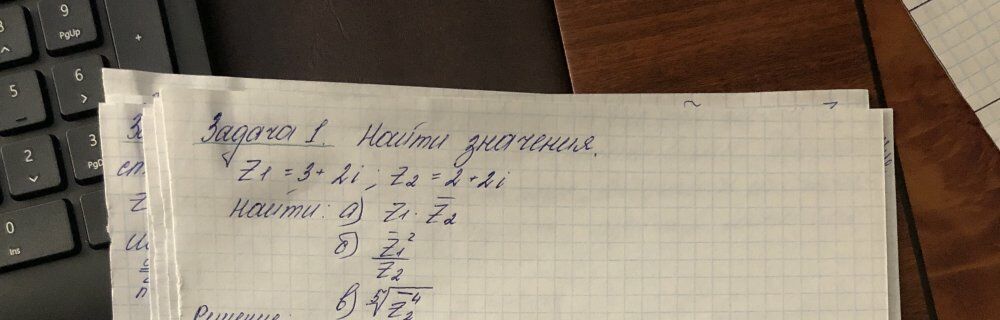 9
PgUp
+
5
6
2
3
0
Ins
Задача 1. Найти значения.
Z1 = 3 + 2i ; Z2 = 2 + 2i
Найти: а) Z1 · Z̅2
б) Z̅1² / Z2
в) ⁵√Z̅2⁴
Решение: